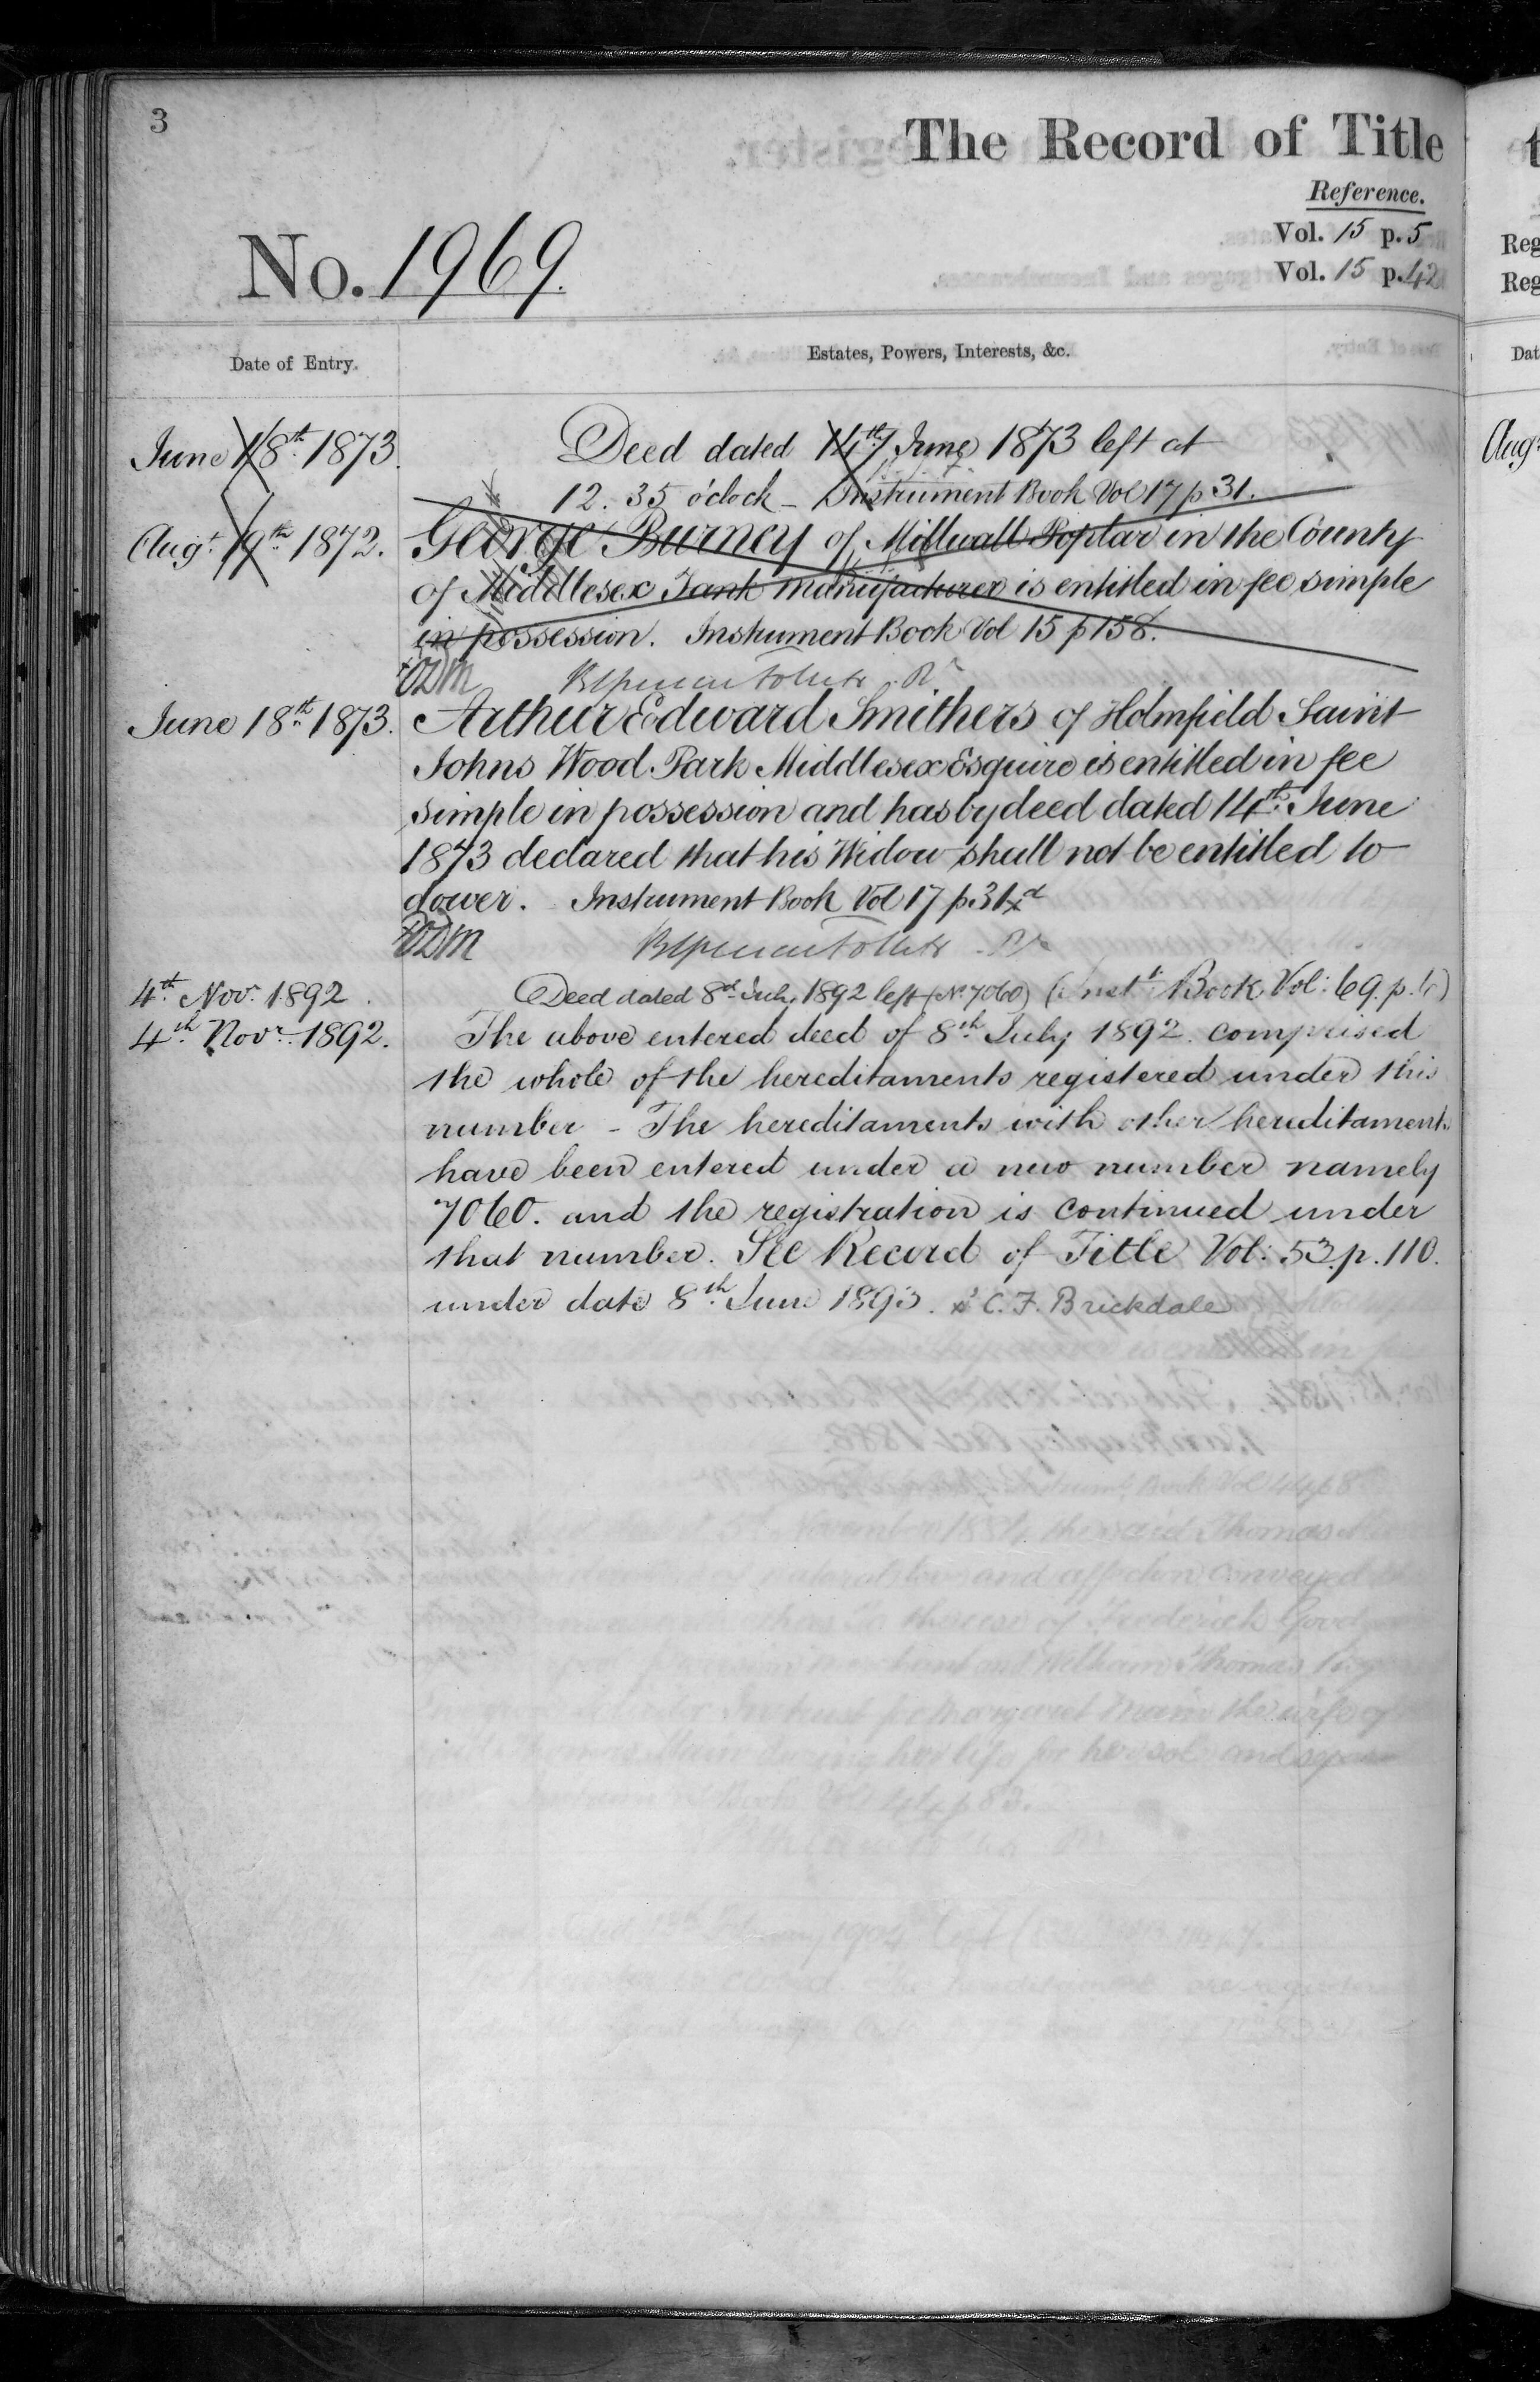 3
The Record of Title
Reference.
Vol. 15 p. 5
Vol. 15 p. 42
No. 1969.
Date of Entry.
Estates, Powers, Interests, &c.
June 18th 1873.
Deed dated 14th June 1873 left at
12. 35 o'clock - Instrument Book Vol 17 p 31.
Augt. 19th 1872.
George Burney of Millwall Poplar in the County
of Middlesex Tank manufacturer is entitled in fee simple
in possession. Instrument Book Vol 15 p 158.
June 18th 1873.
Arthur Edward Smithers of Holmfield Saint
Johns Wood Park Middlesex Esquire is entitled in fee
simple in possession and has by deed dated 14th June
1873 declared that his Widow shall not be entitled to
dower. Instrument Book Vol 17 p 31
4th Novr. 1892
Deed dated 8th July 1892 left (No. 7060) (Inst. Book Vol: 69. p.
4th Novr. 1892.
The above entered deed of 8th July 1892. comprised
the whole of the hereditaments registered under this
number - The hereditaments with other hereditaments
have been entered under a new number namely
7060. and the registration is continued under
that number. See Record of Title Vol: 53. p. 110.
under date 8th June 1893. C. F. Brickdale
Reg
Reg
Dat
Aug